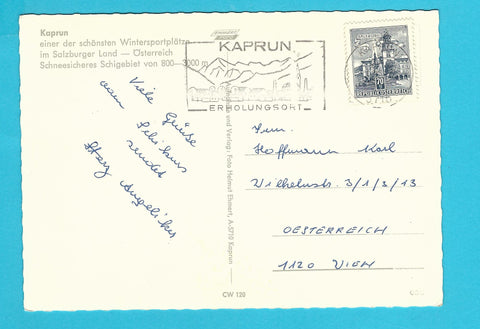 Kaprun
einer der schönsten Wintersportplätze
im Salzburger Land — Österreich
Schneesicheres Schigebiet von 800—3000 m
KAPRUN
ERHOLUNGSORT
REPUBLIK ÖSTERREICH
Viele Grüße
vom Schikurs
sendet
Angelika
und Verlag: Foto Helmut Ehmert, A-5710 Kaprun
Hoffmann Karl
Wilhelmstr. 3/1/3/13
OESTERREICH
1120 WIEN
CW 120